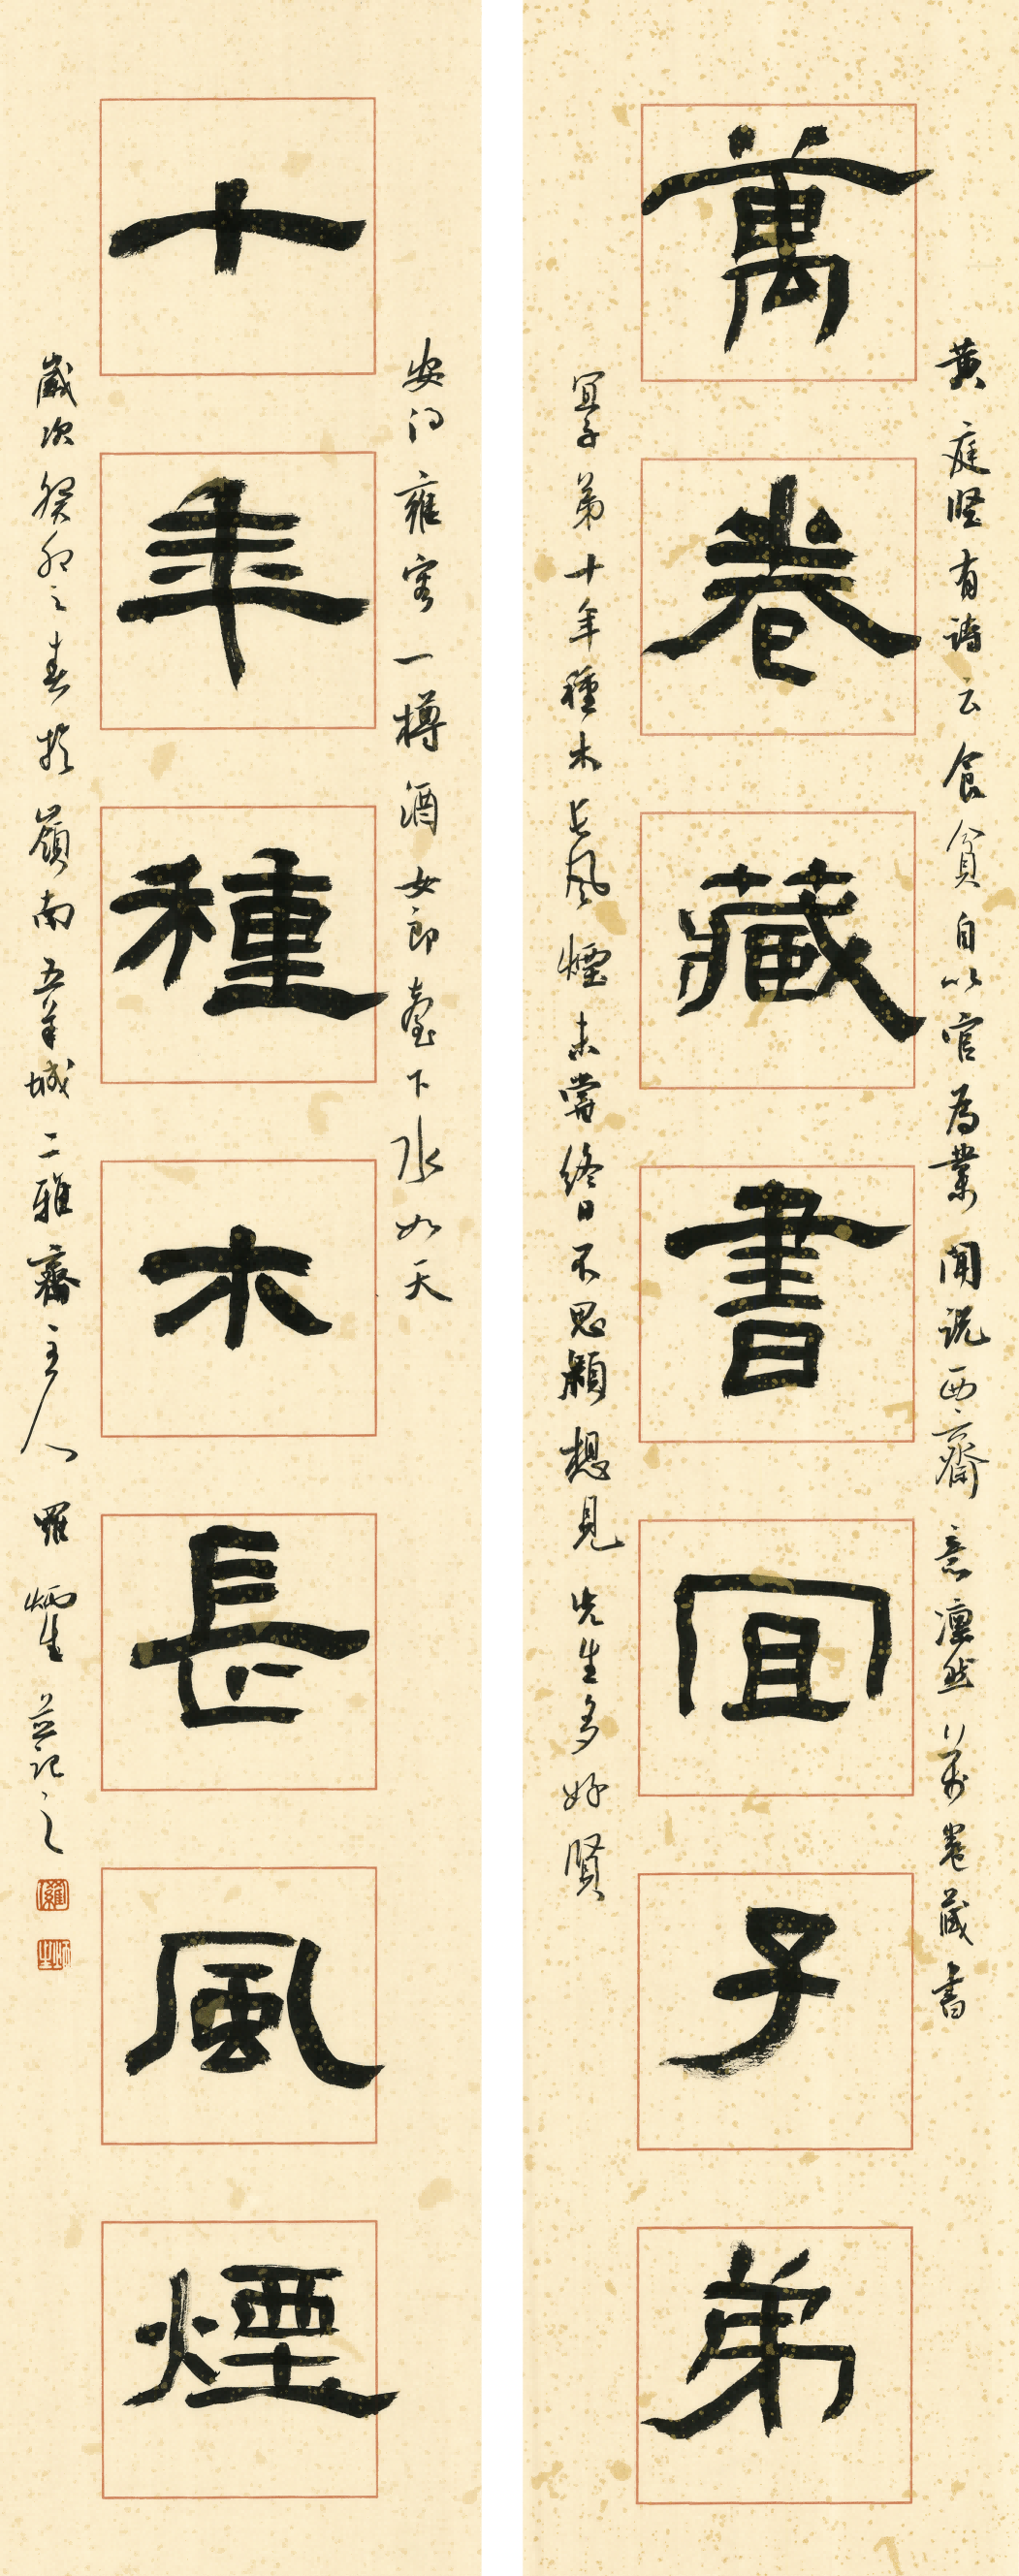 黄庭堅有詩云食貧自以官為業聞説西齋意凛然萬卷藏書
萬卷藏書宜子弟
宜子弟十年種木長風煙未嘗終日不思潁想見先生多好賢
安得雍容一樽酒女郎臺下水如天
十年種木長風煙
歲次癸卯之春於嶺南五羊城二雅齋主人羅炳生並記之
羅
炳生